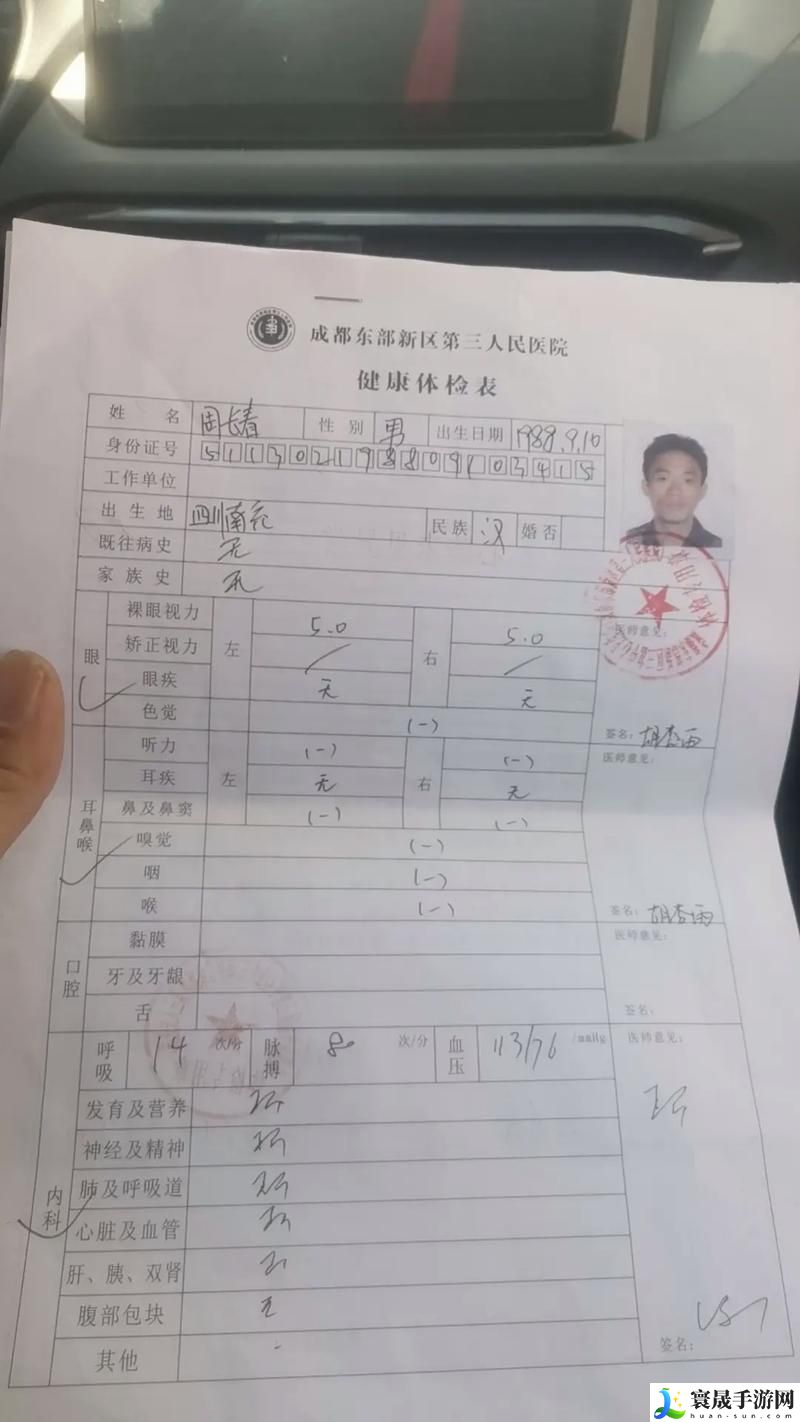 成都东部新区第三人民医院
健康体检表
姓名 周长春 性别 男 出生日期 1988.9.10
身份证号 511302198809103415
工作单位
出生地 四川南充 民族 汉 婚否
既往病史 无
家族史 无
眼 裸眼视力 左 5.0 右 5.0 医师意见：
矫正视力 / /
眼疾 无 无
色觉 (-) 签名：
耳鼻喉 听力 左 (-) 右 (-) 医师意见：
耳疾 无 无
鼻及鼻窦 (-) (-)
嗅觉 (-)
咽 (-)
喉 (-) 签名：
口腔 黏膜 医师意见：
牙及牙龈
舌 签名：
内科 呼吸 14 次/分 脉搏 80 次/分 血压 113/76 /mmHg 医师意见：
发育及营养
神经及精神
肺及呼吸道
心脏及血管
肝、胰、双肾
腹部包块 无
其他 -
签名：
寰晟手游网
huan-sun.com